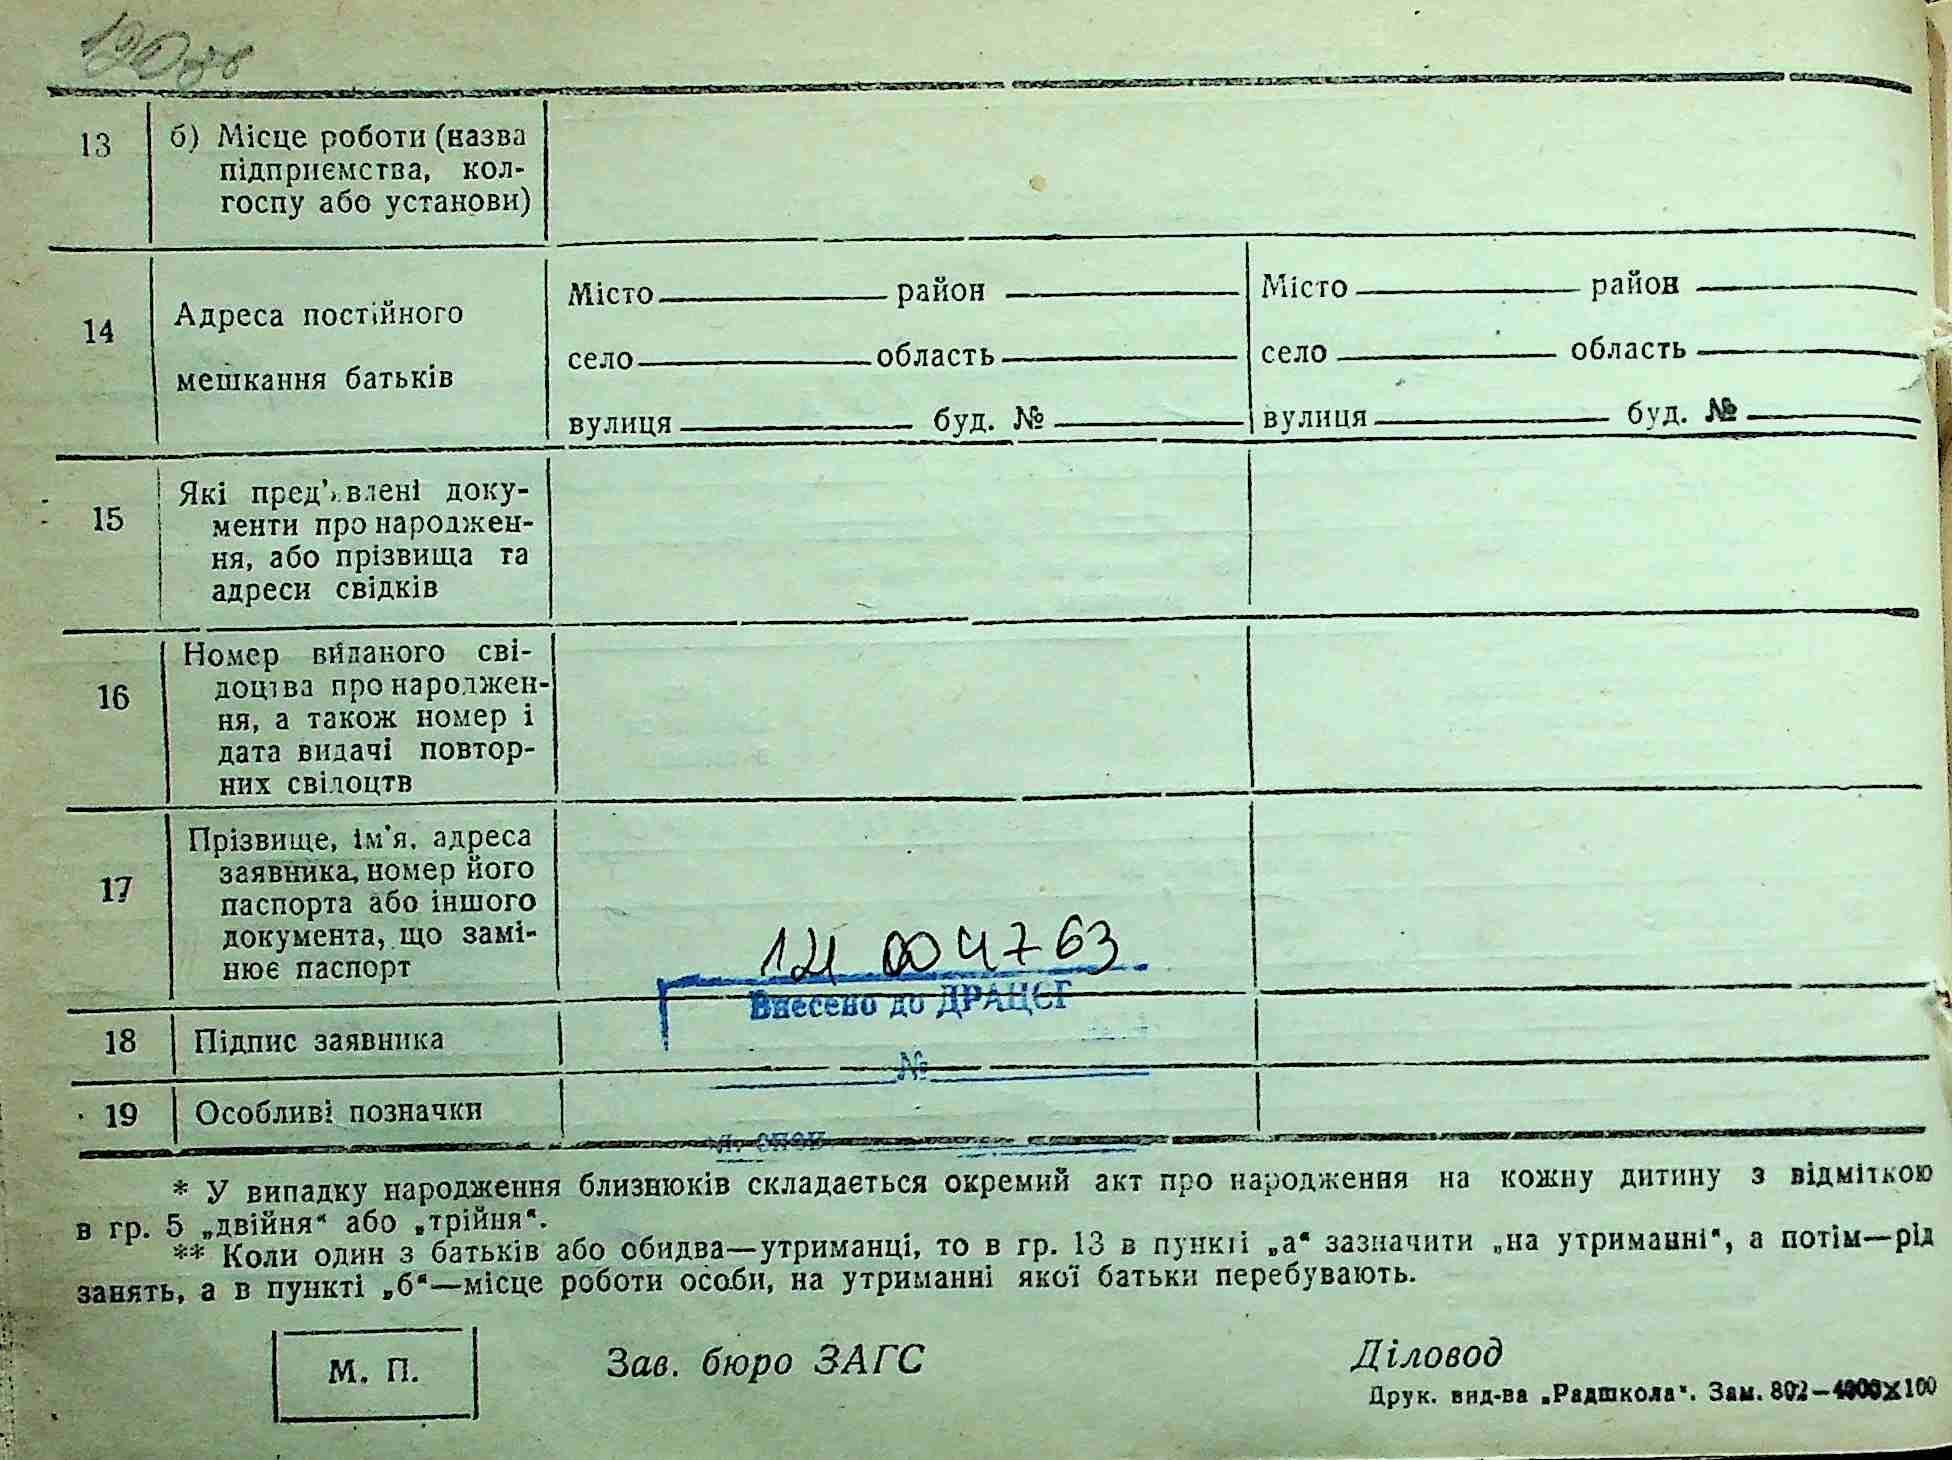 13
б) Місце роботи (назва
підприємства, кол-
госпу або установи)
14
Адреса постійного
мешкання батьків
Місто район
село область
вулиця буд. №
Місто район
село область
вулиця буд. №
15
Які пред’явлені доку-
менти про народжен-
ня, або прізвища та
адреси свідків
16
Номер виданого сві-
доцтва про народжен-
ня, а також номер і
дата видачі повтор-
них свідоцтв
17
Прізвище, ім'я, адреса
заявника, номер його
паспорта або іншого
документа, що замі-
нює паспорт
121 004763
Внесено до ДРАЦСГ
18
Підпис заявника
№
19
Особливі позначки
* У випадку народження близнюків складається окремий акт про народження на кожну дитину з відміткою
в гр. 5 „двійня“ або „трійня“.
** Коли один з батьків або обидва—утриманці, то в гр. 13 в пункті „а“ зазначити „на утриманні“, а потім—рід
занять, а в пункті „б“—місце роботи особи, на утриманні якої батьки перебувають.
М. П.
Зав. бюро ЗАГС
Діловод
Друк. вид-ва „Радшкола“. Зам. 802—4000×100